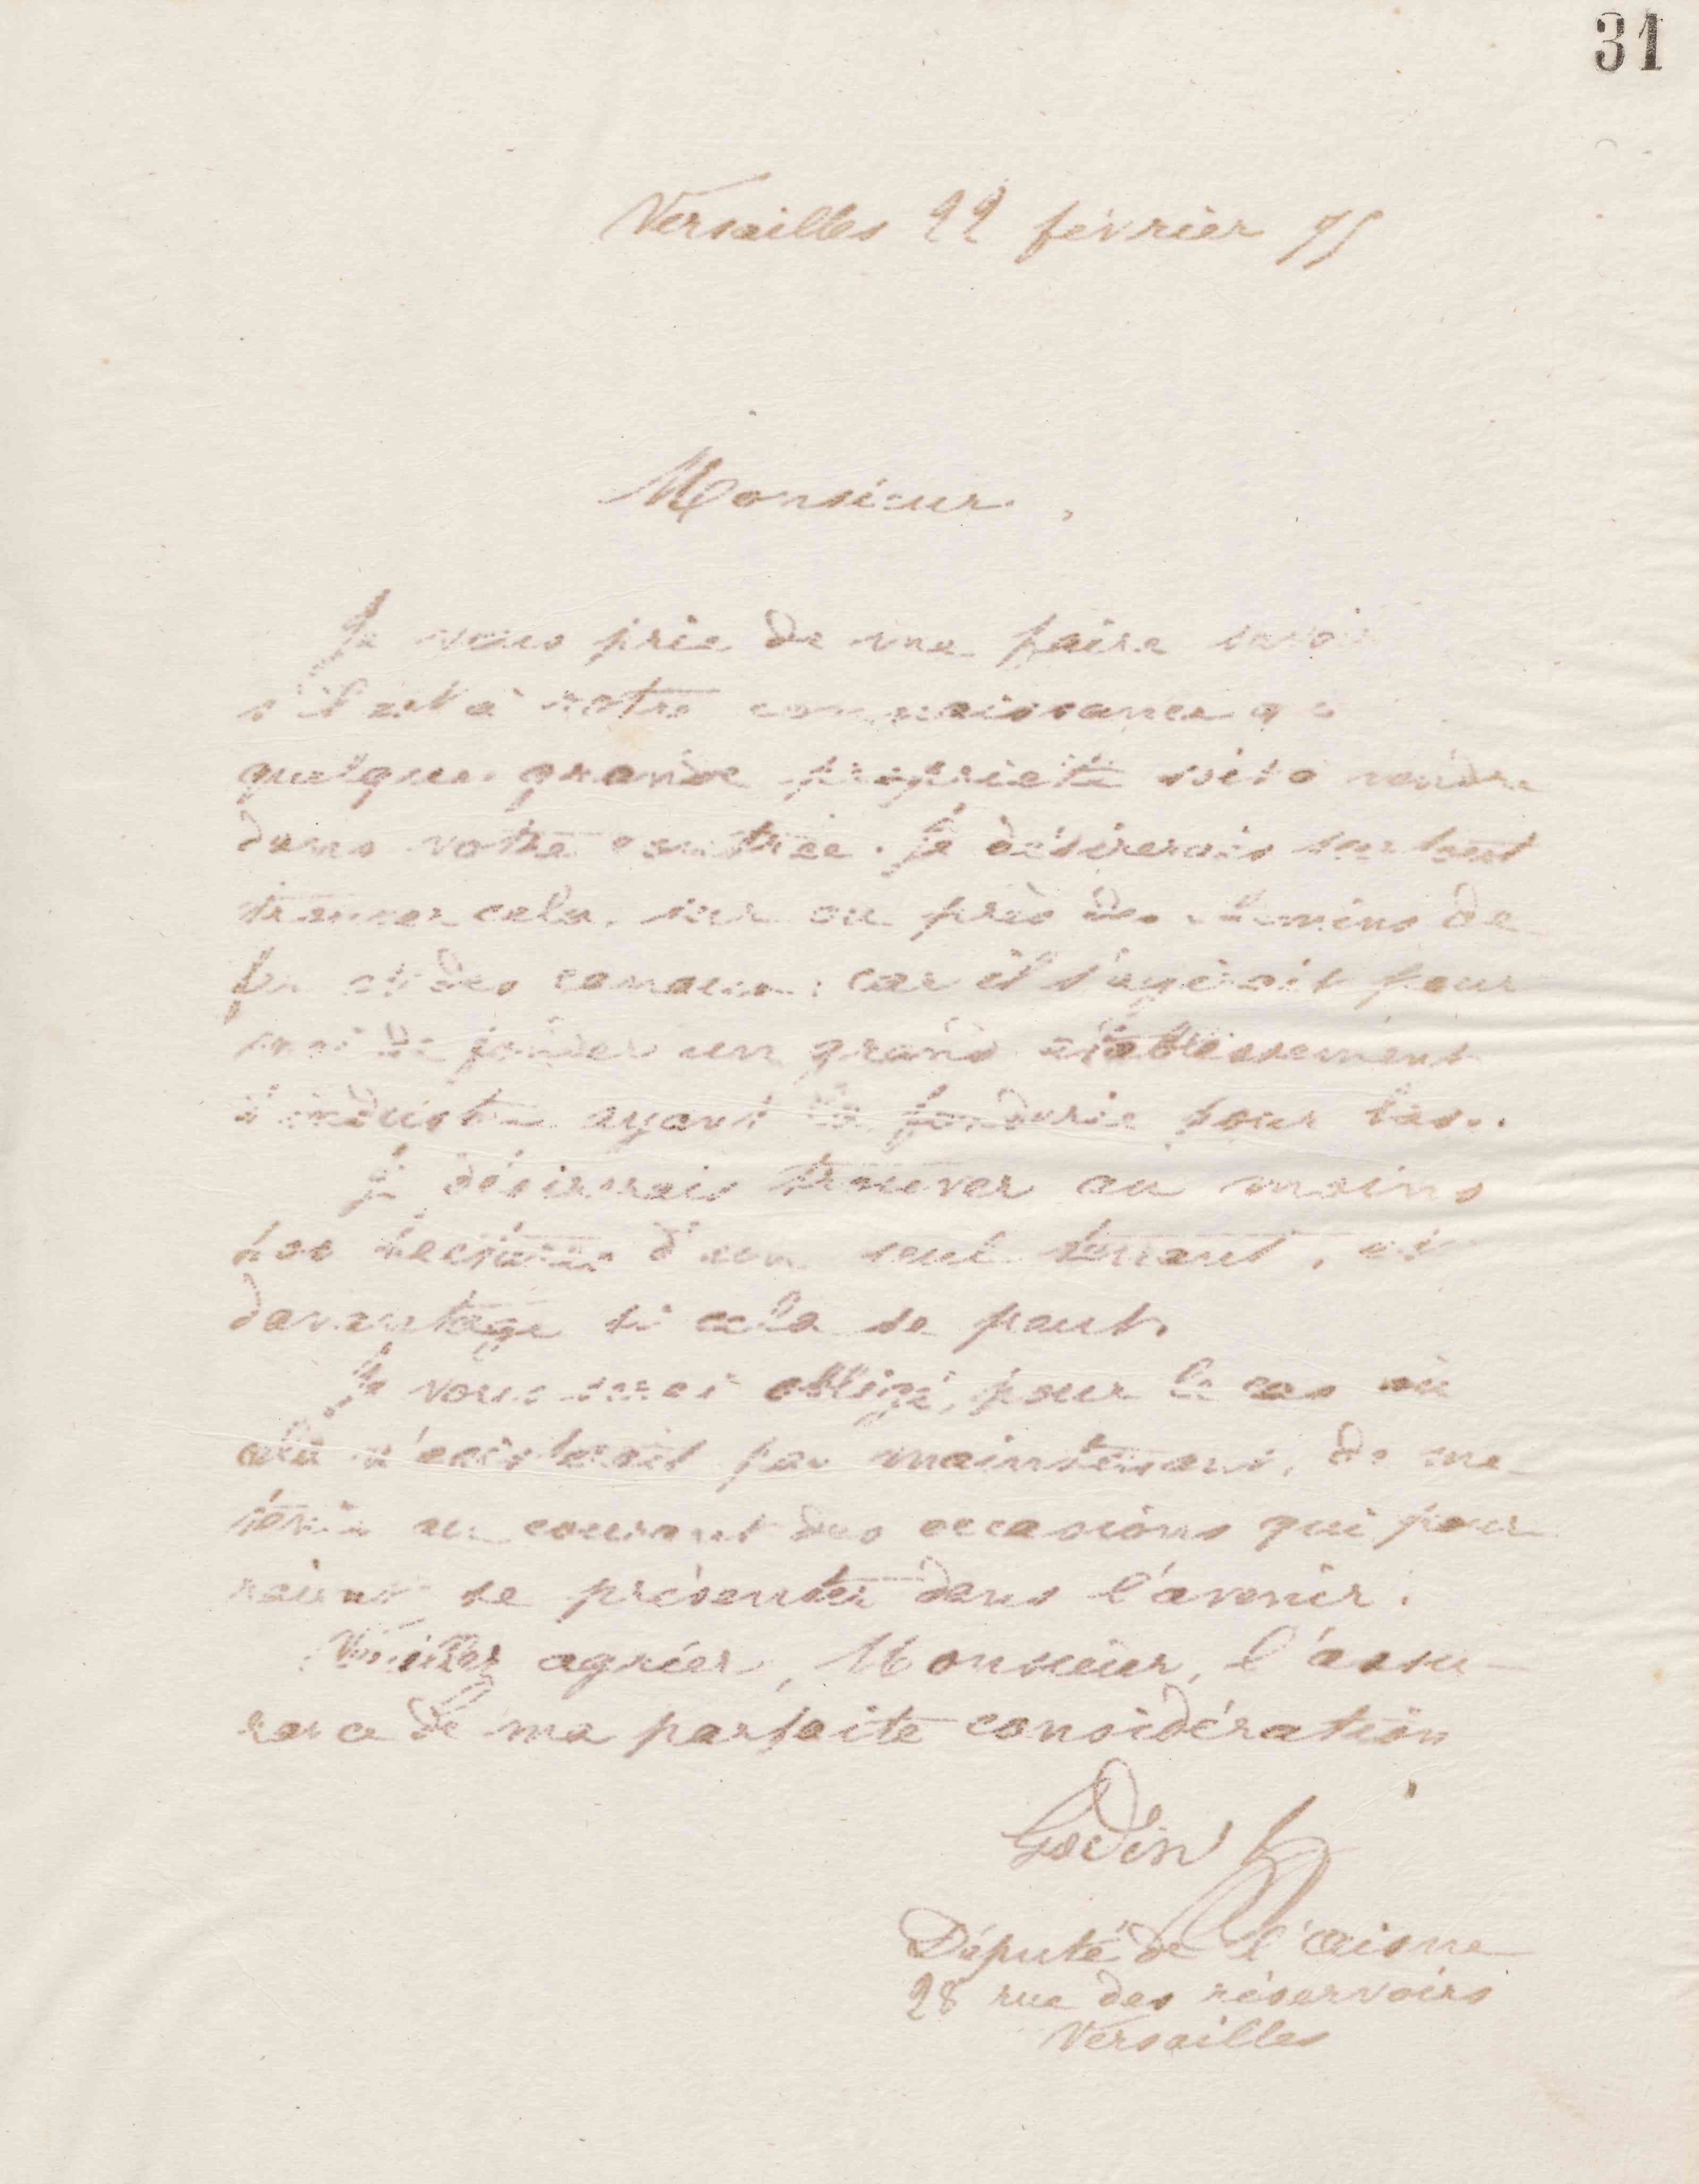 31
Versailles 22 février 75
Monsieur,
Je vous prie de me faire savoir
s'il est à votre connaissance que
quelque grande propriété soit à vendre
dans votre contrée. Je désirerais surtout
trouver cela, sur ou près des chemins de
fer et des canaux; car il s'agirait pour
moi de fonder un grand établissement
d'industrie ayant la fonderie pour base.
Je désirerais trouver au moins
hectares d'un seul tenant, et
davantage si cela se peut.
Je vous serai obligé, pour le cas où
cela n'existerait pas maintenant, de me
tenir au courant des occasions qui pour
raient se présenter dans l'avenir.
Veuillez agréer, Monsieur, l'assu-
rance de ma parfaite considération
Godin
Député de l'aisne
28 rue des réservoirs
Versailles